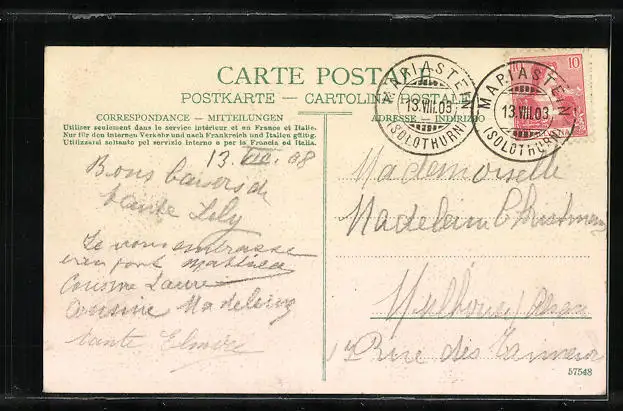 CARTE POSTALE
POSTKARTE — CARTOLINA POSTALE
CORRESPONDANCE — MITTEILUNGEN
ADRESSE — INDIRIZZO
Utilizer seulement dans le service intérieur et en France et Italie.
Nur für den internen Verkehr und nach Frankreich und Italien gültig.
Utilizzarsi soltanto pel servizio interno e per la Francia ed Italia.
MARIASTEIN
13.VIII.08
(SOLOTHURN)
MARIASTEIN
13.VIII.08
(SOLOTHURN)
10
13. VIII. 08
Bons baisers de
tante Lély
Je vous embrasse
bien fort Mathilde
Cousine Laure
Cousine Madeleine
tante Elmire
Mademoiselle
Madeleine
Mulhouse / Alsace
17 Rue des Tanneurs
57548